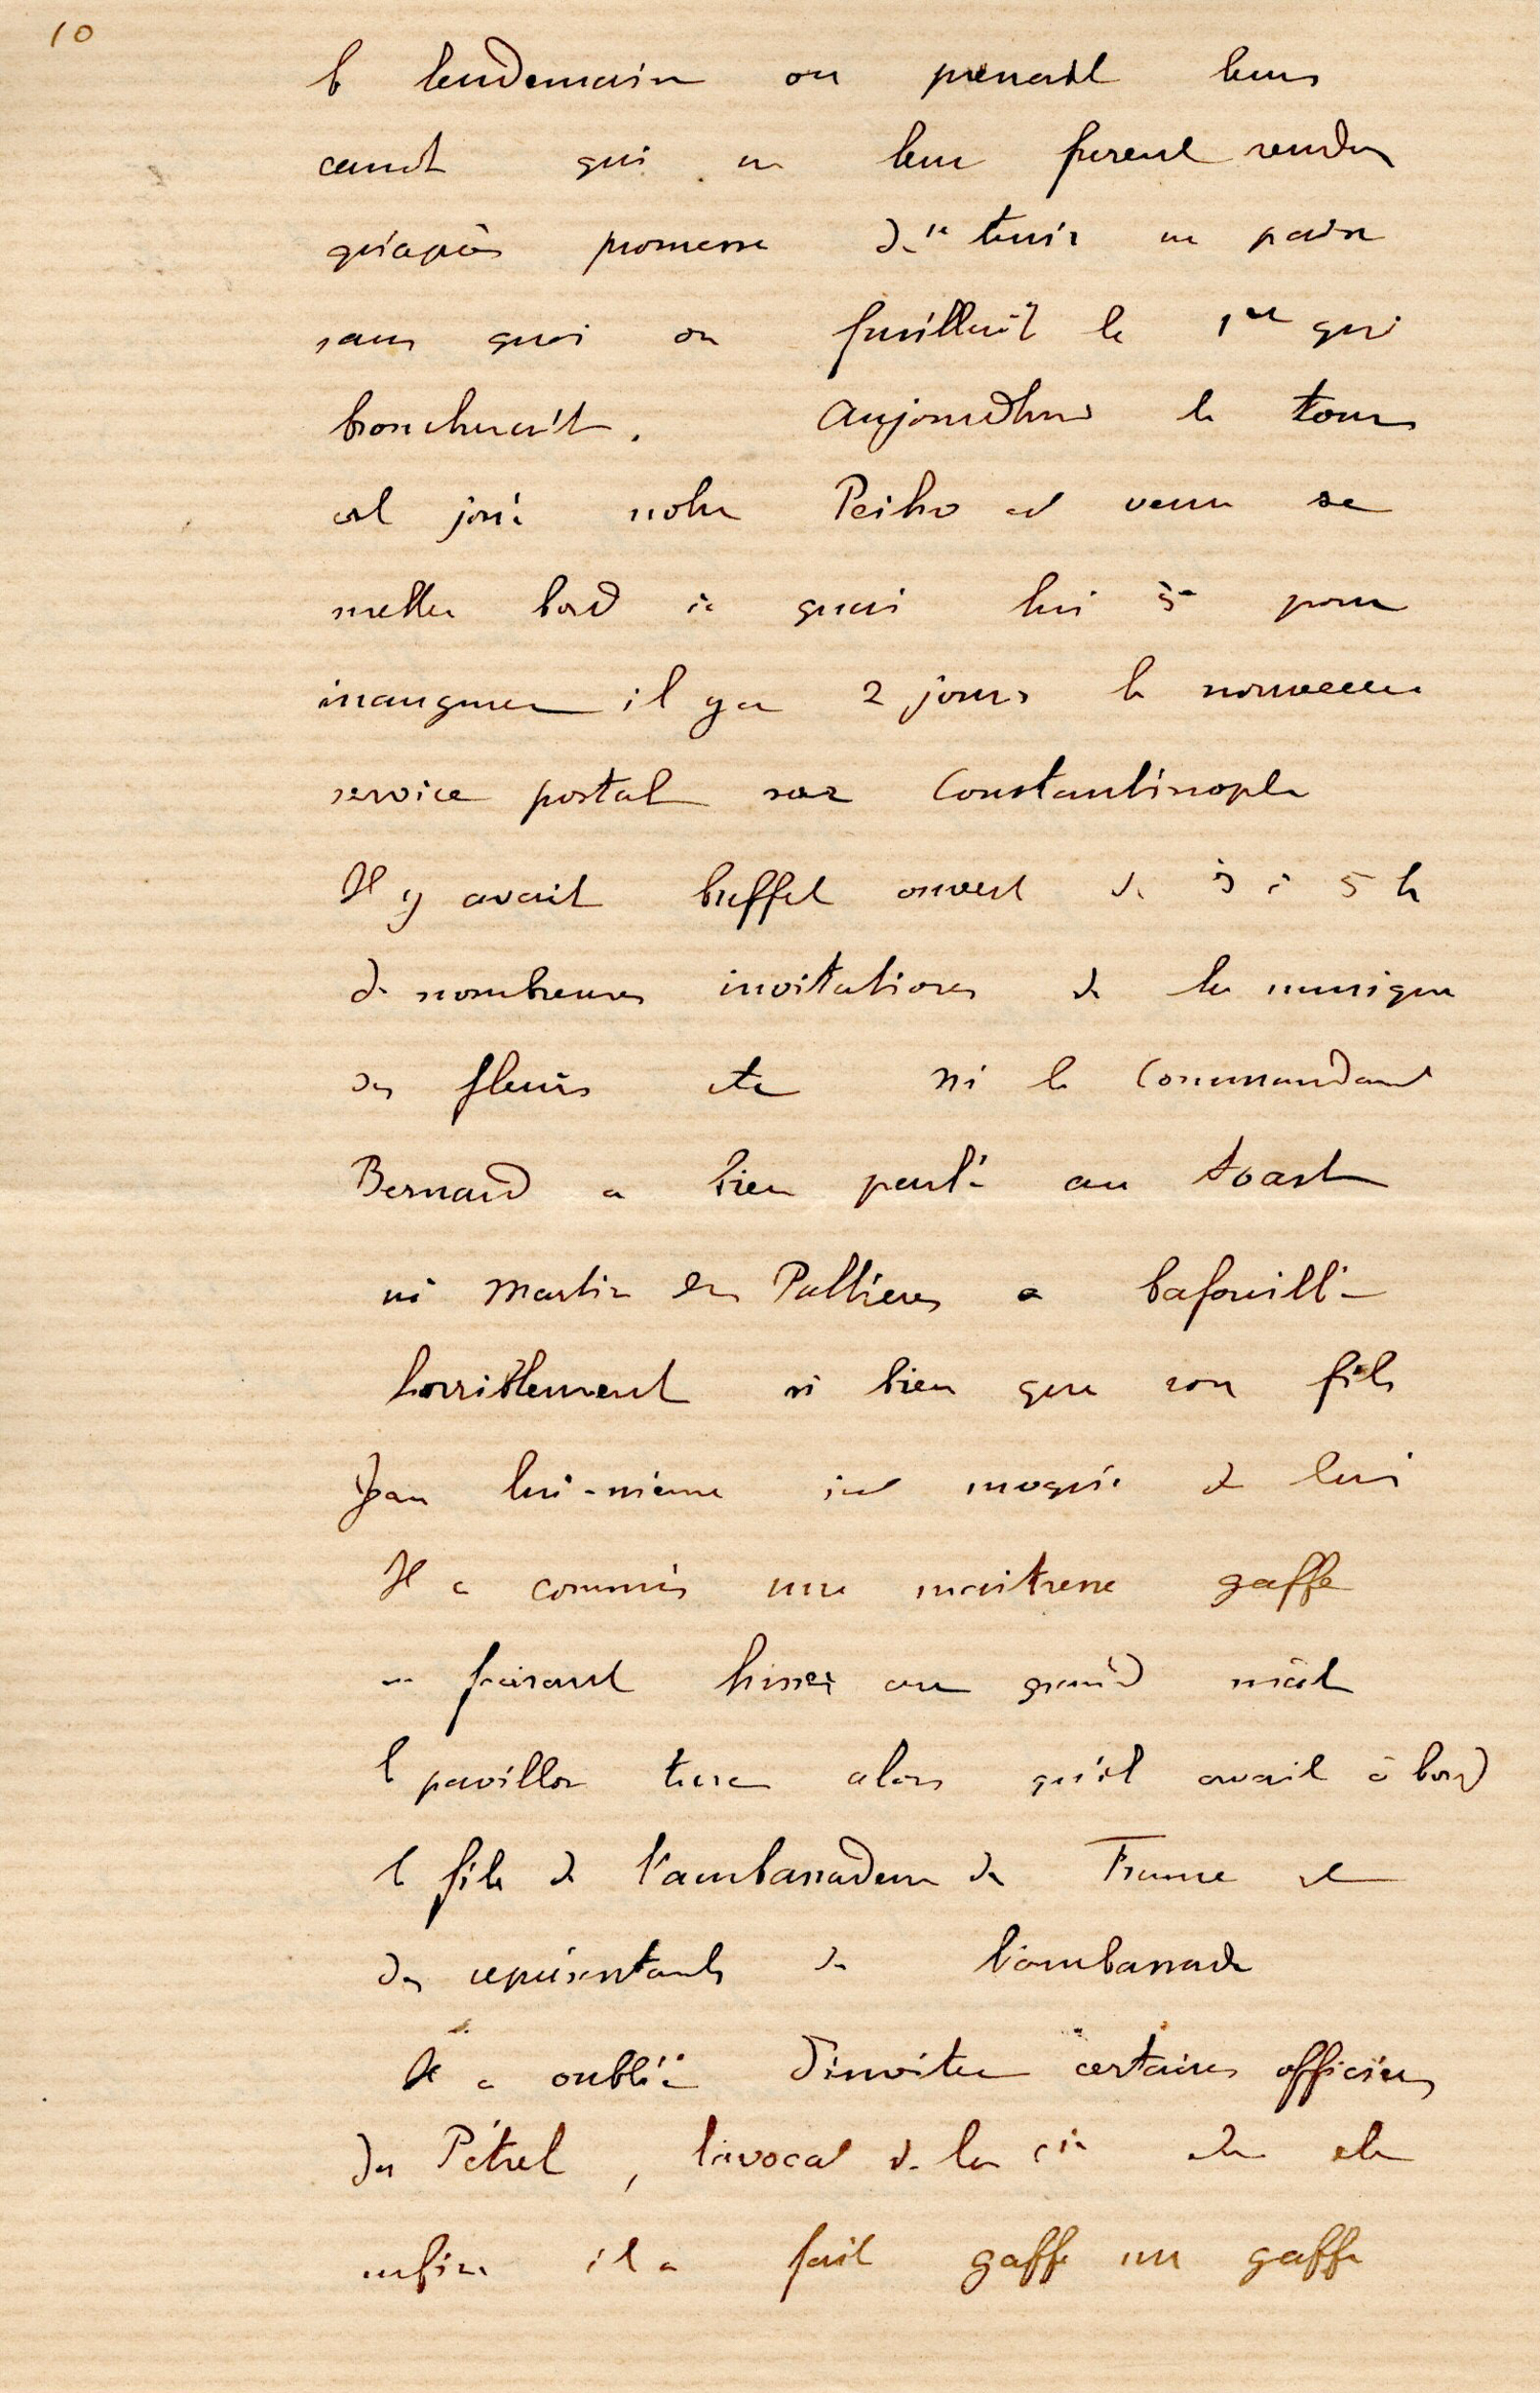 10
le lendemain on prenait leurs
canots qui ne leur furent rendus
qu'après promesse de se tenir en paix
sans quoi on fusillait le 1er qui
broncherait. Aujourd'hui le tour
est joué notre Peiho est venu se
mettre bord à quai lui pour
inaugurer il y a 2 jours le nouveau
service postal sur Constantinople
Il y avait buffet ouvert de 3 à 5 h
de nombreuses invitations de la musique
des fleurs etc si le Commandant
Bernard a bien parlé au toast
ni Martin des Pallières a bafouillé
horriblement si bien que son fils
Jean lui-même s'est moqué de lui
Il a commis une maitresse gaffe
en faisant hisser au grand mât
le pavillon turc alors qu'il avait à bord
le fils de l'ambassadeur de France et
des représentants de l'ambassade
Il a oublié d'inviter certains officiers
du Pétrel, l'avocat de la Cie etc etc
enfin il a fait gaffe sur gaffe